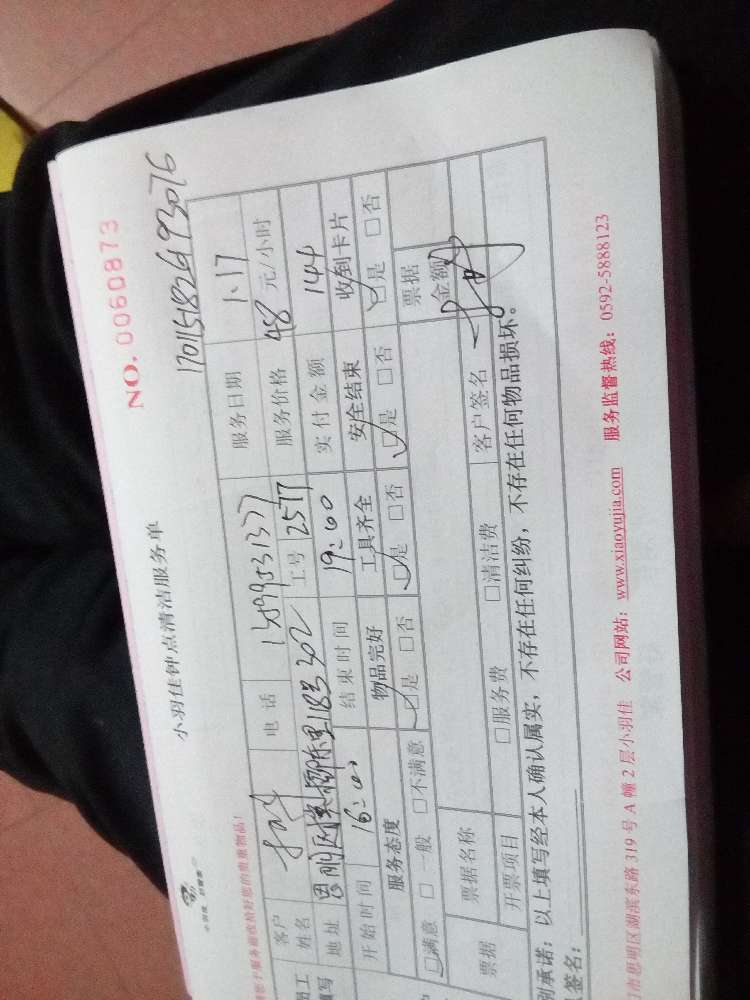 小羽佳钟点清洁服务单
NO. 0060873
于服务前收拾好您的贵重物品!
客户姓名 电话 服务日期 1.17
地址 工号 2577 服务价格 48 元/小时
开始时间 16:00 结束时间 19:00 实付金额 144
服务态度 物品完好 工具齐全 安全结束 收到卡片
□满意 □一般 □不满意 □是 □否 □是 □否 □是 □否 □是 □否
票据 票据名称 票据金额
开票项目 □服务费 □清洁费 客户签名
承诺:以上填写经本人确认属实,不存在任何纠纷,不存在任何物品损坏。
签名:
市思明区湖滨东路 319 号 A 幢 2 层小羽佳 公司网站:www.xiaoyujia.com 服务监督热线:0592-5888123